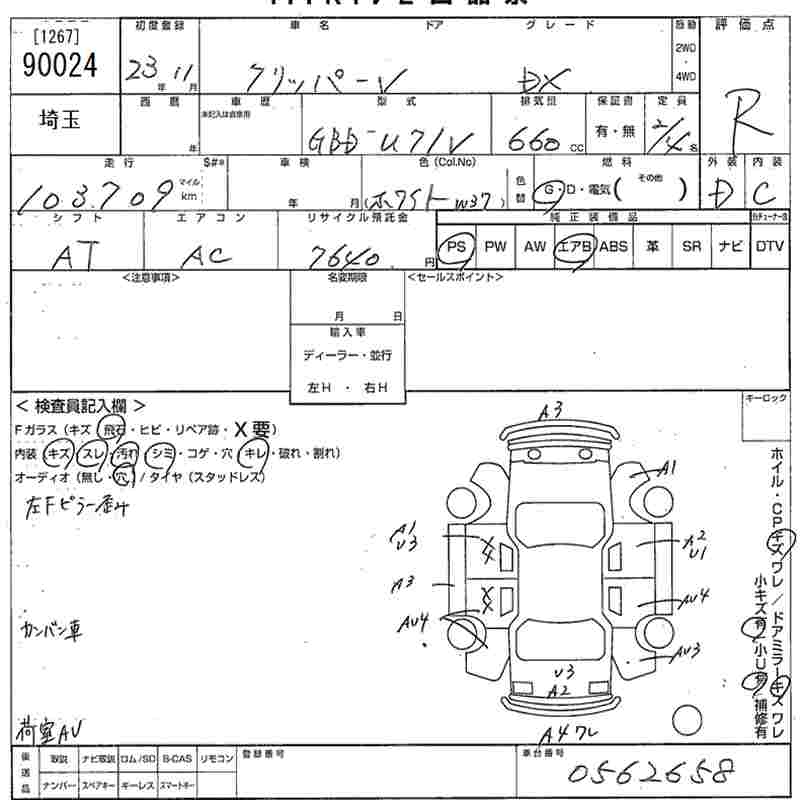 [1267]
90024
初度登録
23年11月
車名 ドア グレード
クリッパーV DX
駆動
2WD
・
4WD
評価点
R
埼玉
西暦
年
車歴
未記入は自家用
型式
GBD-U71V
排気量
660 CC
保証書
有・無
定員
2/4名
走行 $#*
103709 マイル km
車検
年 月
色(Col.No)
(ホワイト W37)
色替
燃料
G・D・電気( その他 )
外装
D
内装
C
シフト
AT
エアコン
AC
リサイクル預託金
7640円
純正装備品
PS PW AW エアB ABS 革 SR ナビ DTV
<注意事項>
名変期限
月 日
<セールスポイント>
輸入車
ディーラー・並行
左H ・ 右H
キーロック
< 検査員記入欄 >
Fガラス(キズ・飛石・ヒビ・リペア跡・X要)
内装(キズ・スレ・汚れ・シミ・コゲ・穴・キレ・破れ・割れ)
オーディオ(無し・穴)/タイヤ(スタッドレス)
左Fピラー歪み
カンバン車
荷室AU
A3
A1
A1
U3
A2
U1
A3
AU4
AU4
AU3
U3
A2
A4ワレ
ホイル・CPキズワレ/ドアミラーキズワレ
小キズ有 小U有 補修有
後送品
取説 ナビ取説 ロム/SD B-CAS リモコン
ナンバー スペアキー キーレス スマートキー
登録番号
車台番号
0562658